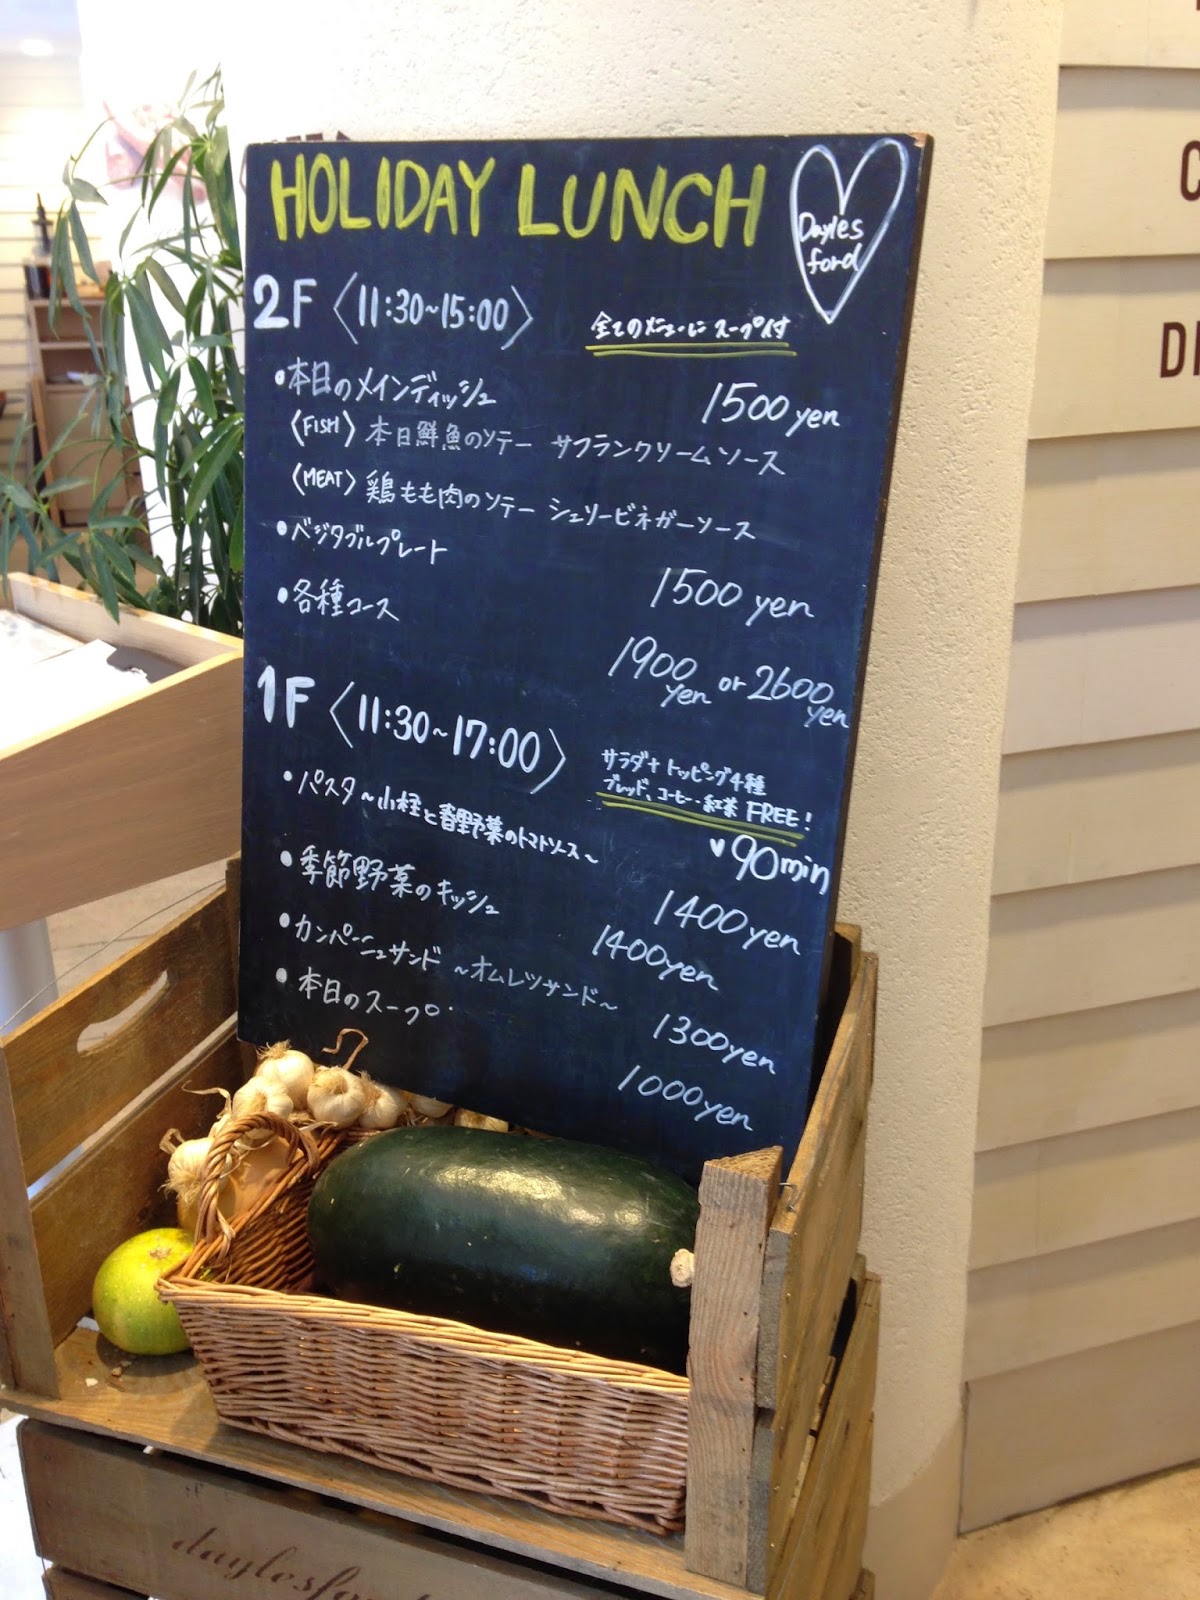 HOLIDAY LUNCH
Dayles
ford
2F 〈11:30~15:00〉
全てのメニューに スープ付
・本日のメインディッシュ 1500yen
〈FISH〉本日鮮魚のソテー サフランクリームソース
〈MEAT〉鶏もも肉のソテー シェリービネガーソース
・ベジタブルプレート 1500 yen
・各種コース 1900 yen or 2600 yen
1F 〈11:30~17:00〉
サラダ+トッピング4種
ブレッド、コーヒー・紅茶 FREE!
♥90min
・パスタ ~小柱と春野菜のトマトソース~ 1400yen
・季節野菜のキッシュ 1400yen
・カンパーニュサンド ~オムレツサンド~ 1300yen
・本日のスープ 1000yen
C
DI
daylesfo